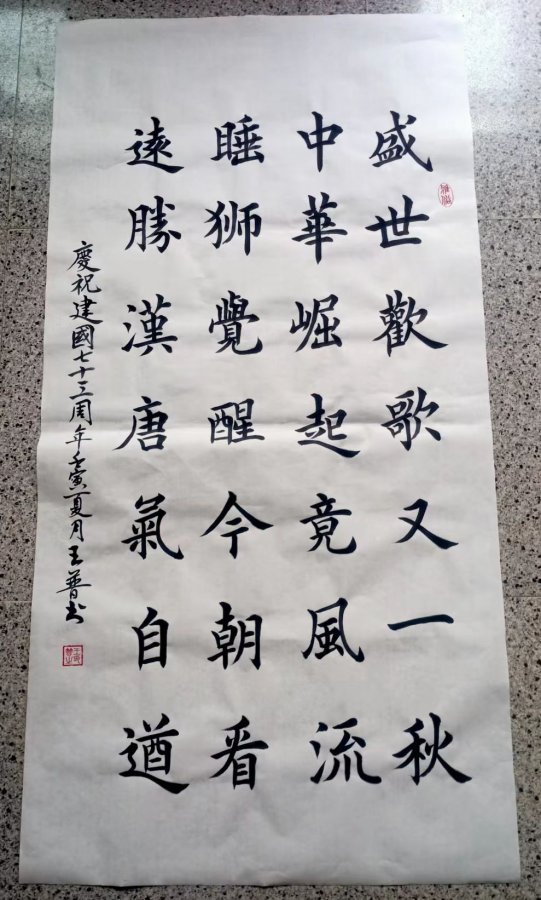 盛世歡歌又一秋
中華崛起竟風流
睡狮覺醒今朝看
遠勝漢唐氣自遒
慶祝建國七十三周年壬寅夏月王普书